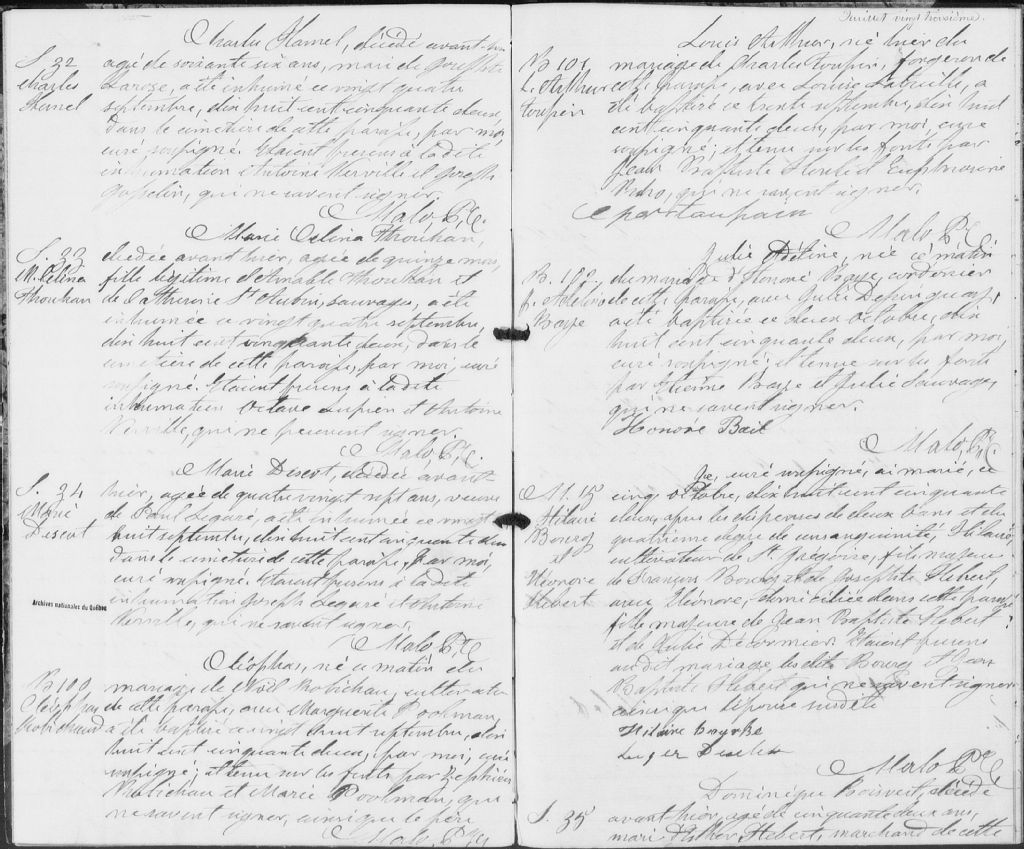 Charles Hamel, décédé avant-hier
S. 32
Charles
Hamel
agé de soixante six ans, mari de Josephte
Larose, a été inhumé ce vingt quatre
septembre, dix huit cent cinquante deux,
dans le cimetière de cette paroisse, par moi,
curé soussigné. Etaient présens à la dite
inhumation Antoine Verville et Joseph
qui ne savent signer.
Malo, Ptre
Marie Celina Thouhan,
S. 33
M. Celina
Thouhan
décédée avant hier, agée de quinze mois,
fille légitime d'Aimable Thouhan et
de Catherine St Aubin, sauvages, a été
inhumée ce vingt quatre septembre,
dix huit cent cinquante deux, dans le
cimetière de cette paroisse, par moi, curé
soussigné. Etaient présens à la dite
inhumation Octave Lupien et Antoine
Verville, qui ne peuvent signer.
Malo, Ptre
Marie Descot, décédée avant
S. 34
Marie
Descot
hier, agée de quatre vingt sept ans, veuve
de Paul Legaré, a été inhumée ce vingt
huit septembre, dix huit cent cinquante deux
dans le cimetière de cette paroisse, par moi,
curé soussigné. Etaient présens à la dite
inhumation Joseph Legaré et Antoine
Verville, qui ne savent signer.
Archives nationales du Québec
Malo, Ptre
Cléophas, né ce matin du
B 100
Cléophas
Robichaud
mariage de Noël Robichau, cultivateur
de cette paroisse, avec Marguerite Poolman,
a été baptisé ce vingt huit septembre, dix
huit cent cinquante deux, par moi, curé
soussigné; et tenu sur les fonts par Zephirin
Robichau et Marie Poolman, qui
ne savent signer, ainsi que le père
Malo, Ptre
Feuillet vingt troisième.
Louis Arthur, né hier du
B 101
L. Arthur
Toupin
mariage de Charles Toupin, forgeron de
cette paroisse, avec Louise Labreille, a
été baptisé ce trente septembre, dix huit
cent cinquante deux, par moi, curé
soussigné; et tenu sur les fonts par
Jean Baptiste Houle et Euphrosine
qui ne savent signer.
Malo Ptre
Julie Adeline, née ce matin
B. 102
J. Adeline
Baye
du mariage d'Honoré Baye, cordonnier
de cette paroisse, avec Julie
a été baptisée ce deux octobre, dix
huit cent cinquante deux, par moi,
curé soussigné; et tenue sur les fonts
par Etienne Baye et Julie Sauvage,
qui ne savent signer.
Honore Bail
Malo, Ptre
Je, curé soussigné, ai marié, ce
M. 15
Hilaire
Bourg
et
Eléonore
Hebert
cinq octobre, dix huit cent cinquante
deux, après les dispenses de deux bans et du
quatrième degré de consanguinité, Hilaire,
cultivateur de St Grégoire, fils majeur
de François Bourg et de Josephte Hebert,
avec Eléonore, domiciliée dans cette paroisse
fille majeure de Jean Baptiste Hebert
et de Julie Décormier. Etaient présens
au dit mariage, les dits Bourg et Jean
Baptiste Hebert qui ne savent signer
ainsi que l'épouse susdite
Hilaire bourke
Malo Ptre
Dominique Boisvert, décédé
S. 35
avant hier, agé de cinquante deux ans,
mari d'Esther Hebert, marchand de cette